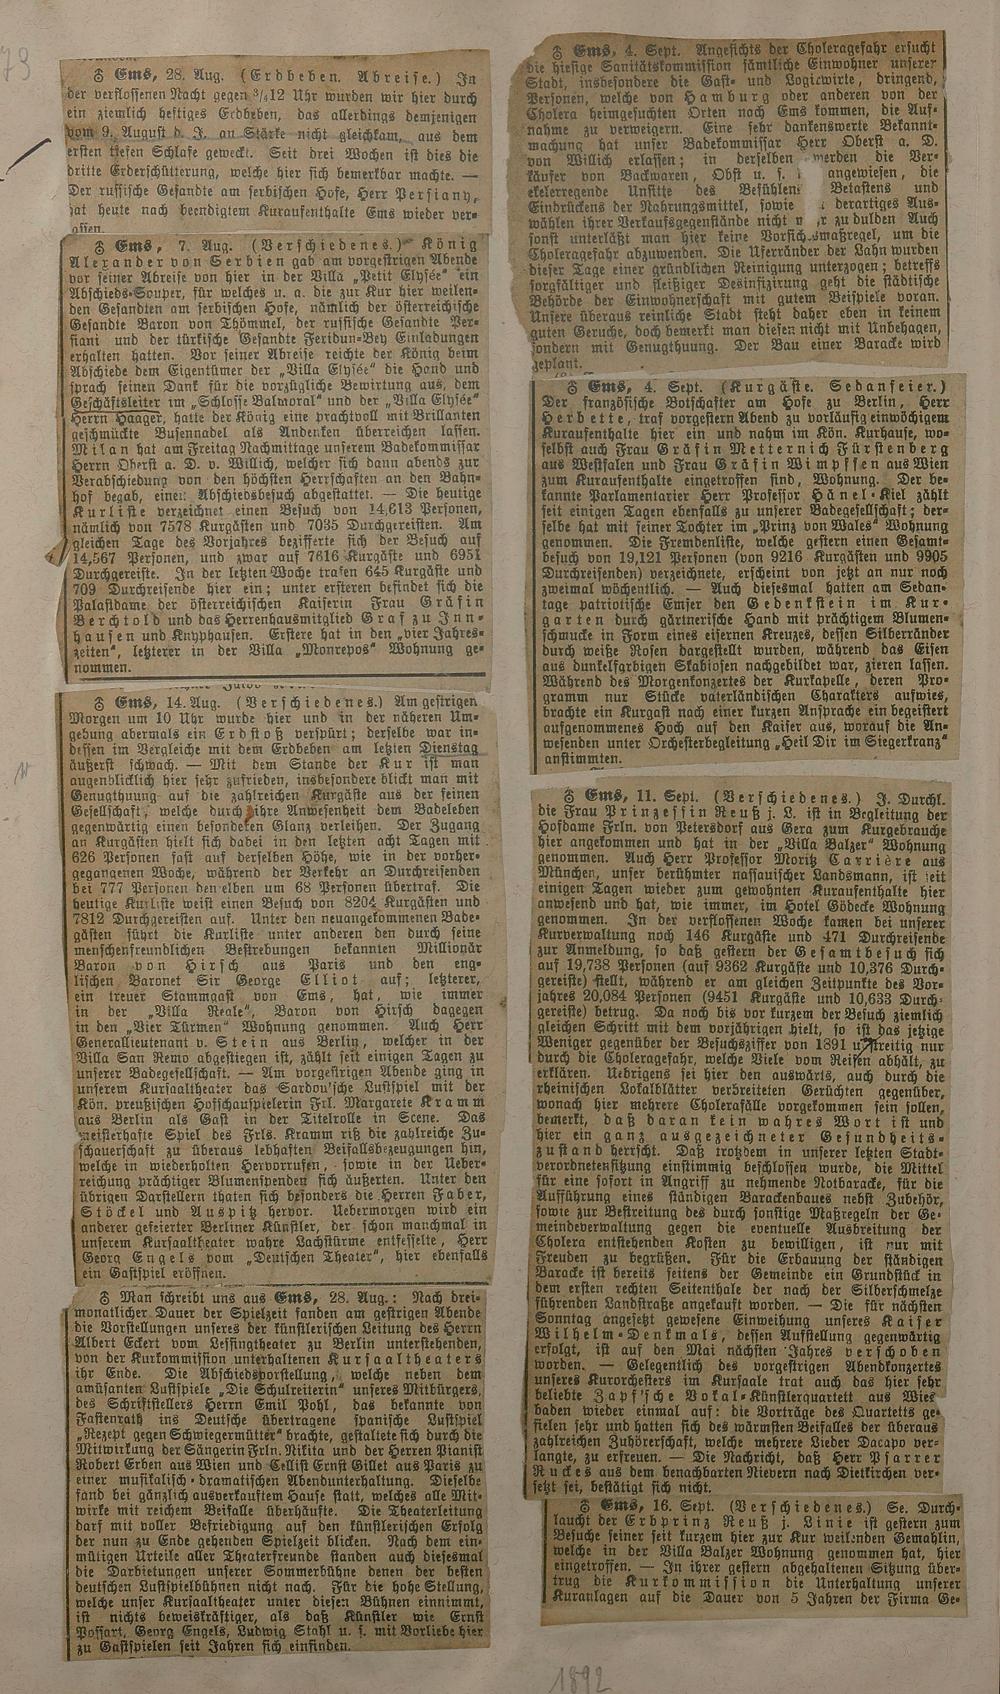 73
♁ Ems, 28. Aug. (Erdbeben. Abreise.) In
der verflossenen Nacht gegen ³/₄12 Uhr wurden wir hier durch
ein ziemlich heftiges Erdbeben, das allerdings demjenigen
vom 9. August d. J. an Stärke nicht gleichkam, aus dem
ersten tiefen Schlafe geweckt. Seit drei Wochen ist dies die
dritte Erderschütterung, welche hier sich bemerkbar machte. —
Der russische Gesandte am serbischen Hofe, Herr Persiany,
hat heute nach beendigtem Kuraufenthalte Ems wieder ver-
lassen.
♁ Ems, 7. Aug. (Verschiedenes.) König
Alexander von Serbien gab am vorgestrigen Abende
vor seiner Abreise von hier in der Villa „Petit Elysée“ ein
Abschieds-Souper, für welches u. a. die zur Kur hier weilen-
den Gesandten am serbischen Hofe, nämlich der österreichische
Gesandte Baron von Thömmel, der russische Gesandte Per-
siani und der türkische Gesandte Feridun-Bey Einladungen
erhalten hatten. Vor seiner Abreise reichte der König beim
Abschiede dem Eigentümer der „Villa Elysée“ die Hand und
sprach seinen Dank für die vorzügliche Bewirtung aus, dem
Geschäftsleiter im „Schlosse Balmoral“ und der „Villa Elysée“
Herrn Haager, hatte der König eine prachtvoll mit Brillanten
geschmückte Busennadel als Andenken überreichen lassen.
Milan hat am Freitag Nachmittage unserem Badekommissar
Herrn Oberst a. D. v. Willich, welcher sich dann abends zur
Verabschiedung von den höchsten Herrschaften an den Bahn-
hof begab, einen Abschiedsbesuch abgestattet. — Die heutige
Kurliste verzeichnet einen Besuch von 14,613 Personen,
nämlich von 7578 Kurgästen und 7035 Durchgereisten. Am
gleichen Tage des Vorjahres bezifferte sich der Besuch auf
14,567 Personen, und zwar auf 7616 Kurgäste und 6951
Durchgereiste. In der letzten Woche trafen 645 Kurgäste und
709 Durchreisende hier ein; unter ersteren befindet sich die
Palastdame der österreichischen Kaiserin Frau Gräfin
Berchtold und das Herrenhausmitglied Graf zu Inn-
hausen und Knyphausen. Erstere hat in den „vier Jahres-
zeiten“, letzterer in der Villa „Monrepos“ Wohnung ge-
nommen.
♁ Ems, 14. Aug. (Verschiedenes.) Am gestrigen
Morgen um 10 Uhr wurde hier und in der näheren Um-
gebung abermals ein Erdstoß verspürt; derselbe war in-
dessen im Vergleiche mit dem Erdbeben am letzten Dienstag
äußerst schwach. — Mit dem Stande der Kur ist man
augenblicklich hier sehr zufrieden, insbesondere blickt man mit
Genugthuung auf die zahlreichen Kurgäste aus der feinen
Gesellschaft, welche durch ihre Anwesenheit dem Badeleben
gegenwärtig einen besonderen Glanz verleihen. Der Zugang
an Kurgästen hielt sich dabei in den letzten acht Tagen mit
626 Personen fast auf derselben Höhe, wie in der vorher-
gegangenen Woche, während der Verkehr an Durchreisenden
bei 777 Personen denselben um 68 Personen übertraf. Die
heutige Kurliste weist einen Besuch von 8204 Kurgästen und
7812 Durchgereisten auf. Unter den neuangekommenen Bade-
gästen führt die Kurliste unter anderen den durch seine
menschenfreundlichen Bestrebungen bekannten Millionär
Baron von Hirsch aus Paris und den eng-
lischen Baronet Sir George Elliot auf; letzterer,
ein treuer Stammgast von Ems, hat, wie immer
in der „Villa Reale“, Baron von Hirsch dagegen
in den „Vier Türmen“ Wohnung genommen. Auch Herr
Generallieutenant v. Stein aus Berlin, welcher in der
Villa San Remo abgestiegen ist, zählt seit einigen Tagen zu
unserer Badegesellschaft. — Am vorgestrigen Abende ging in
unserem Kursaaltheater das Sardou'sche Lustspiel mit der
Kön. preußischen Hofschauspielerin Frl. Margarete Kramm
aus Berlin als Gast in der Titelrolle in Scene. Das
meisterhafte Spiel des Frls. Kramm riß die zahlreiche Zu-
schauerschaft zu überaus lebhaften Beifallsbezeugungen hin,
welche in wiederholten Hervorrufen, sowie in der Ueber-
reichung prächtiger Blumenspenden sich äußerten. Unter den
übrigen Darstellern thaten sich besonders die Herren Faber,
Stöckel und Auspitz hervor. Uebermorgen wird ein
anderer gefeierter Berliner Künstler, der schon manchmal in
unserem Kursaaltheater wahre Lachstürme entfesselte, Herr
Georg Engels vom „Deutschen Theater“, hier ebenfalls
ein Gastspiel eröffnen.
♁ Man schreibt uns aus Ems, 28. Aug.: Nach drei-
monatlicher Dauer der Spielzeit fanden am gestrigen Abende
die Vorstellungen unseres der künstlerischen Leitung des Herrn
Albert Eckert vom Lessingtheater zu Berlin unterstehenden,
von der Kurkommission unterhaltenen Kursaaltheaters
ihr Ende. Die Abschiedsvorstellung, welche neben dem
amüsanten Lustspiele „Die Schulreiterin“ unseres Mitbürgers,
des Schriftstellers Herrn Emil Pohl, das bekannte von
Fastenrath ins Deutsche übertragene spanische Lustspiel
„Rezept gegen Schwiegermütter“ brachte, gestaltete sich durch die
Mitwirkung der Sängerin Frln. Nikita und der Herren Pianist
Robert Erben aus Wien und Cellist Ernst Gillet aus Paris zu
einer musikalisch-dramatischen Abendunterhaltung. Dieselbe
fand bei gänzlich ausverkauftem Hause statt, welches alle Mit-
wirke mit reichem Beifalle überhäufte. Die Theaterleitung
darf mit voller Befriedigung auf den künstlerischen Erfolg
der nun zu Ende gehenden Spielzeit blicken. Nach dem ein-
mütigen Urteile aller Theaterfreunde standen auch diesesmal
die Darbietungen unserer Sommerbühne denen der besten
deutschen Lustspielbühnen nicht nach. Für die hohe Stellung,
welche unser Kursaaltheater unter diesen Bühnen einnimmt,
ist nichts beweiskräftiger, als daß Künstler wie Ernst
Possart, Georg Engels, Ludwig Stahl u. s. f. mit Vorliebe hier
zu Gastspielen seit Jahren sich einfinden.
♁ Ems, 4. Sept. Angesichts der Choleragefahr ersucht
die hiesige Sanitätskommission sämtliche Einwohner unserer
Stadt, insbesondere die Gast- und Logiewirte, dringend,
Personen, welche von Hamburg oder anderen von der
Cholera heimgesuchten Orten nach Ems kommen, die Auf-
nahme zu verweigern. Eine sehr dankenswerte Bekannt-
machung hat unser Badekommissar Herr Oberst a. D.
von Willich erlassen; in derselben werden die Ver-
käufer von Backwaren, Obst u. s. angewiesen, die
ekelerregende Unsitte des Befühlens Betastens und
Eindrückens der Nahrungsmittel, sowie derartiges Aus-
wählen ihrer Verkaufsgegenstände nicht zu dulden Auch
sonst unterläßt man hier keine Vorsichtsmaßregel, um die
Choleragefahr abzuwenden. Die Uferränder der Lahn wurden
dieser Tage einer gründlichen Reinigung unterzogen; betreffs
sorgfältiger und fleißiger Desinfizirung geht die städtische
Behörde der Einwohnerschaft mit gutem Beispiele voran.
Unsere überaus reinliche Stadt steht daher eben in keinem
guten Geruche, doch bemerkt man diesen nicht mit Unbehagen,
sondern mit Genugthuung. Der Bau einer Baracke wird
geplant.
♁ Ems, 4. Sept. (Kurgäste. Sedanfeier.)
Der französische Botschafter am Hofe zu Berlin, Herr
Herbette, traf vorgestern Abend zu vorläufig einwöchigem
Kuraufenthalte hier ein und nahm im Kön. Kurhause, wo-
selbst auch Frau Gräfin Metternich Fürstenberg
aus Westfalen und Frau Gräfin Wimpffen aus Wien
zum Kuraufenthalte eingetroffen sind, Wohnung. Der be-
kannte Parlamentarier Herr Professor Hänel-Kiel zählt
seit einigen Tagen ebenfalls zu unserer Badegesellschaft; der-
selbe hat mit seiner Tochter im „Prinz von Wales“ Wohnung
genommen. Die Fremdenliste, welche gestern einen Gesamt-
besuch von 19,121 Personen (von 9216 Kurgästen und 9905
Durchreisenden) verzeichnete, erscheint von jetzt an nur noch
zweimal wöchentlich. — Auch diesesmal hatten am Sedan-
tage patriotische Emser den Gedenkstein im Kur-
garten durch gärtnerische Hand mit prächtigem Blumen-
schmucke in Form eines eisernen Kreuzes, dessen Silberränder
durch weiße Rosen dargestellt wurden, während das Eisen
aus dunkelfarbigen Skabiosen nachgebildet war, zieren lassen.
Während des Morgenkonzertes der Kurkapelle, deren Pro-
gramm nur Stücke vaterländischen Charakters aufwies,
brachte ein Kurgast nach einer kurzen Ansprache ein begeistert
aufgenommenes Hoch auf den Kaiser aus, worauf die An-
wesenden unter Orchesterbegleitung „Heil Dir im Siegerkranz“
anstimmten.
♁ Ems, 11. Sept. (Verschiedenes.) J. Durchl.
die Frau Prinzessin Reuß j. L. ist in Begleitung der
Hofdame Frln. von Petersdorf aus Gera zum Kurgebrauche
hier angekommen und hat in der „Villa Balzer“ Wohnung
genommen. Auch Herr Professor Moritz Carrière aus
München, unser berühmter nassauischer Landsmann, ist seit
einigen Tagen wieder zum gewohnten Kuraufenthalte hier
anwesend und hat, wie immer, im Hotel Gödecke Wohnung
genommen. In der verflossenen Woche kamen bei unserer
Kurverwaltung noch 146 Kurgäste und 471 Durchreisende
zur Anmeldung, so daß gestern der Gesamtbesuch sich
auf 19,738 Personen (auf 9362 Kurgäste und 10,376 Durch-
gereiste) stellt, während er am gleichen Zeitpunkte des Vor-
jahres 20,084 Personen (9451 Kurgäste und 10,633 Durch-
gereiste) betrug. Da noch bis vor kurzem der Besuch ziemlich
gleichen Schritt mit dem vorjährigen hielt, so ist das jetzige
Weniger gegenüber der Besuchsziffer von 1891 unstreitig nur
durch die Choleragefahr, welche Viele vom Reisen abhält, zu
erklären. Uebrigens sei hier den auswärts, auch durch die
rheinischen Lokalblätter verbreiteten Gerüchten gegenüber,
wonach hier mehrere Cholerafälle vorgekommen sein sollen,
bemerkt, daß daran kein wahres Wort ist und
hier ein ganz ausgezeichneter Gesundheits-
zustand herrscht. Daß trotzdem in unserer letzten Stadt-
verordnetensitzung einstimmig beschlossen wurde, die Mittel
für eine sofort in Angriff zu nehmende Notbaracke, für die
Aufführung eines ständigen Barackenbaues nebst Zubehör,
sowie zur Bestreitung des durch sonstige Maßregeln der Ge-
meindeverwaltung gegen die eventuelle Ausbreitung der
Cholera entstehenden Kosten zu bewilligen, ist nur mit
Freuden zu begrüßen. Für die Erbauung der ständigen
Baracke ist bereits seitens der Gemeinde ein Grundstück in
dem ersten rechten Seitenthale der nach der Silberschmelze
führenden Landstraße angekauft worden. — Die für nächsten
Sonntag angesetzt gewesene Einweihung unseres Kaiser
Wilhelm-Denkmals, dessen Aufstellung gegenwärtig
erfolgt, ist auf den Mai nächsten Jahres verschoben
worden. — Gelegentlich des vorgestrigen Abendkonzertes
unseres Kurorchesters im Kursaale trat auch das hier sehr
beliebte Zapf'sche Vokal-Künstlerquartett aus Wies
baden wieder einmal auf: die Vorträge des Quartetts ge-
fielen sehr und hatten sich des wärmsten Beifalles der überaus
zahlreichen Zuhörerschaft, welche mehrere Lieder Dacapo ver-
langte, zu erfreuen. — Die Nachricht, daß Herr Pfarrer
Ruckes aus dem benachbarten Nievern nach Dietkirchen ver-
setzt sei, bestätigt sich nicht.
♁ Ems, 16. Sept. (Verschiedenes.) Se. Durch-
laucht der Erbprinz Reuß j. Linie ist gestern zum
Besuche seiner seit kurzem hier zur Kur weilenden Gemahlin,
welche in der Villa Balzer Wohnung genommen hat, hier
eingetroffen. — In ihrer gestern abgehaltenen Sitzung über-
trug die Kurkommission die Unterhaltung unserer
Kuranlagen auf die Dauer von 5 Jahren der Firma Ge-
1892